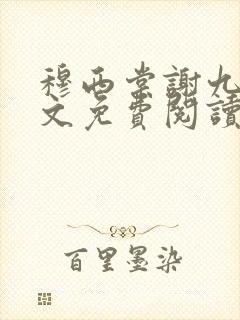 穆西棠謝九
文免費閱讀
百里墨染